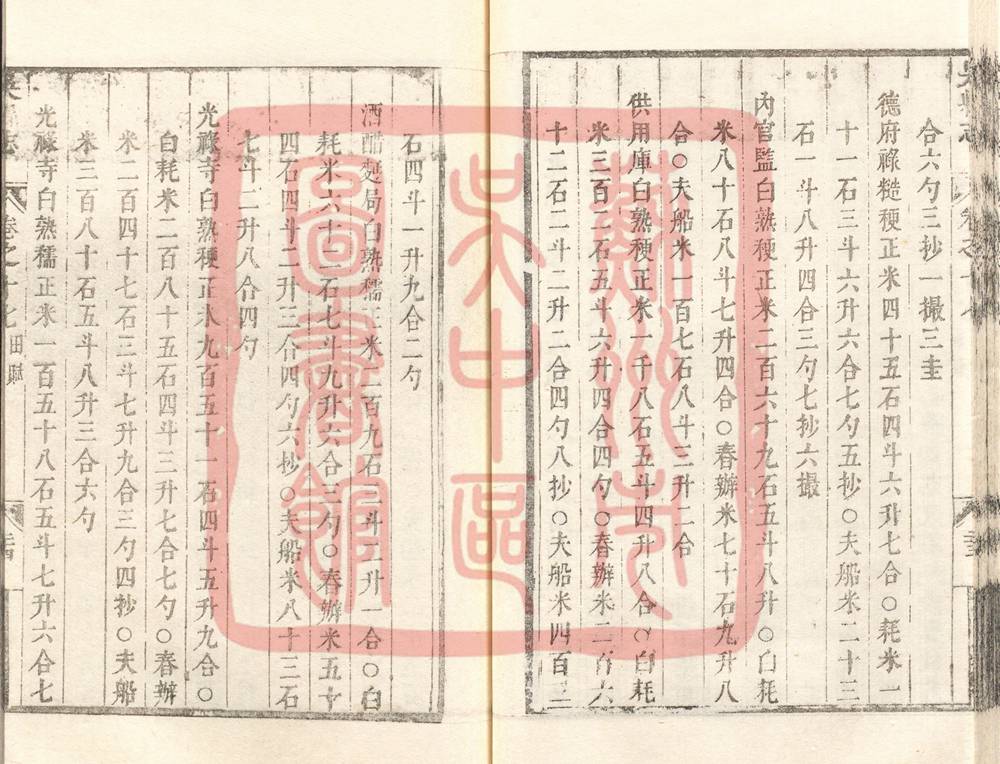 合六勺三抄一撮三圭
德府祿糙粳正米四十五石四斗六升七合○耗米一
十一石三斗六升六合七勺五抄○夫船米二十三
石一斗八升四合三勺七抄六撮
內官監白熟粳正米二百六十九石五斗八升○白耗
米八十石八斗七升四合○舂辦米七十石九升八
合○夫船米一百七石八斗三升二合
供用庫白熟粳正米一千八石五斗四升八合○白耗
米三百二石五斗六升四合四勺○舂辦米二百六
十二石二斗二升二合四勺八抄○夫船米四百三
石四斗一升九合二勺
酒醋麪局白熟糯正米二百九石三斗二升一合○白
耗米六十二石七斗九升六合三勺○舂辦米五十
四石四斗二升三合四勺六抄○夫船米八十三石
七斗二升八合四勺
光祿寺白熟粳正米九百五十一石四斗五升九合○
白耗米二百八十五石四斗三升七合七勺○舂辦
米二百四十七石三斗七升九合三勺四抄○夫船
米三百八十石五斗八升三合六勺
光祿寺白熟糯正米一百五十八石五斗七升六合七
卷之十七 田賦
蘇州市
吳中區
圖書館